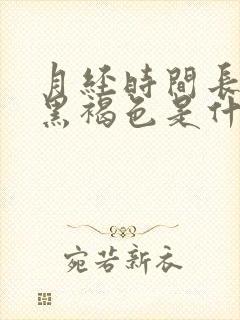 月经時間長
黑褐色是什
宛若新衣